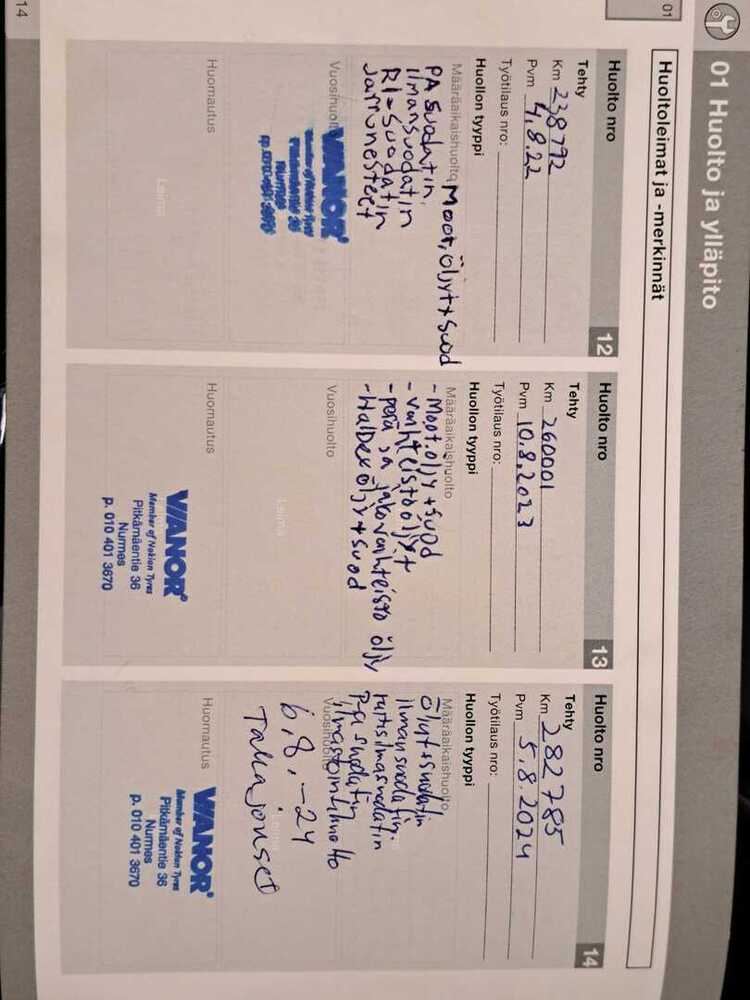 01 Huolto ja ylläpito
01
Huoltoleimat ja -merkinnät
Huolto nro
12
Tehty
Km 238792
Pvm 4.8.22
Työtilaus nro:
Huollon tyyppi
Määräaikaishuolto
Moot, Öljyt+suod
PA suodatin,
ilmansuodatin
RI-Suodatin
Jarrunesteet
Vuosihuolto
VIANOR
Member of Nokian Tyres
Pitkämäentie 36
Nurmes
pp. 010 401 3670
Leima
Huomautus
Huolto nro
13
Tehty
Km 260001
Pvm 10.8.2023
Työtilaus nro:
Huollon tyyppi
Määräaikaishuolto
- Moot.öljy+suod
- Vaihteistoöljyt
- perä ja jakovaihteisto öljy
- Haldex öljy+suod
Vuosihuolto
Leima
Huomautus
VIANOR
Member of Nokian Tyres
Pitkämäentie 36
Nurmes
p. 010 401 3670
Huolto nro
14
Tehty
Km 282785
Pvm 5.8.2024
Työtilaus nro:
Huollon tyyppi
Määräaikaishuolto
Öljyt+suodatin
ilmansuodatin
raitisilmasuodatin
P.a suodatin
ilmastointihuolto
Vuosihuolto
6.8.-24
Takajouset
Leima
Huomautus
VIANOR
Member of Nokian Tyres
Pitkämäentie 36
Nurmes
p. 010 401 3670
14